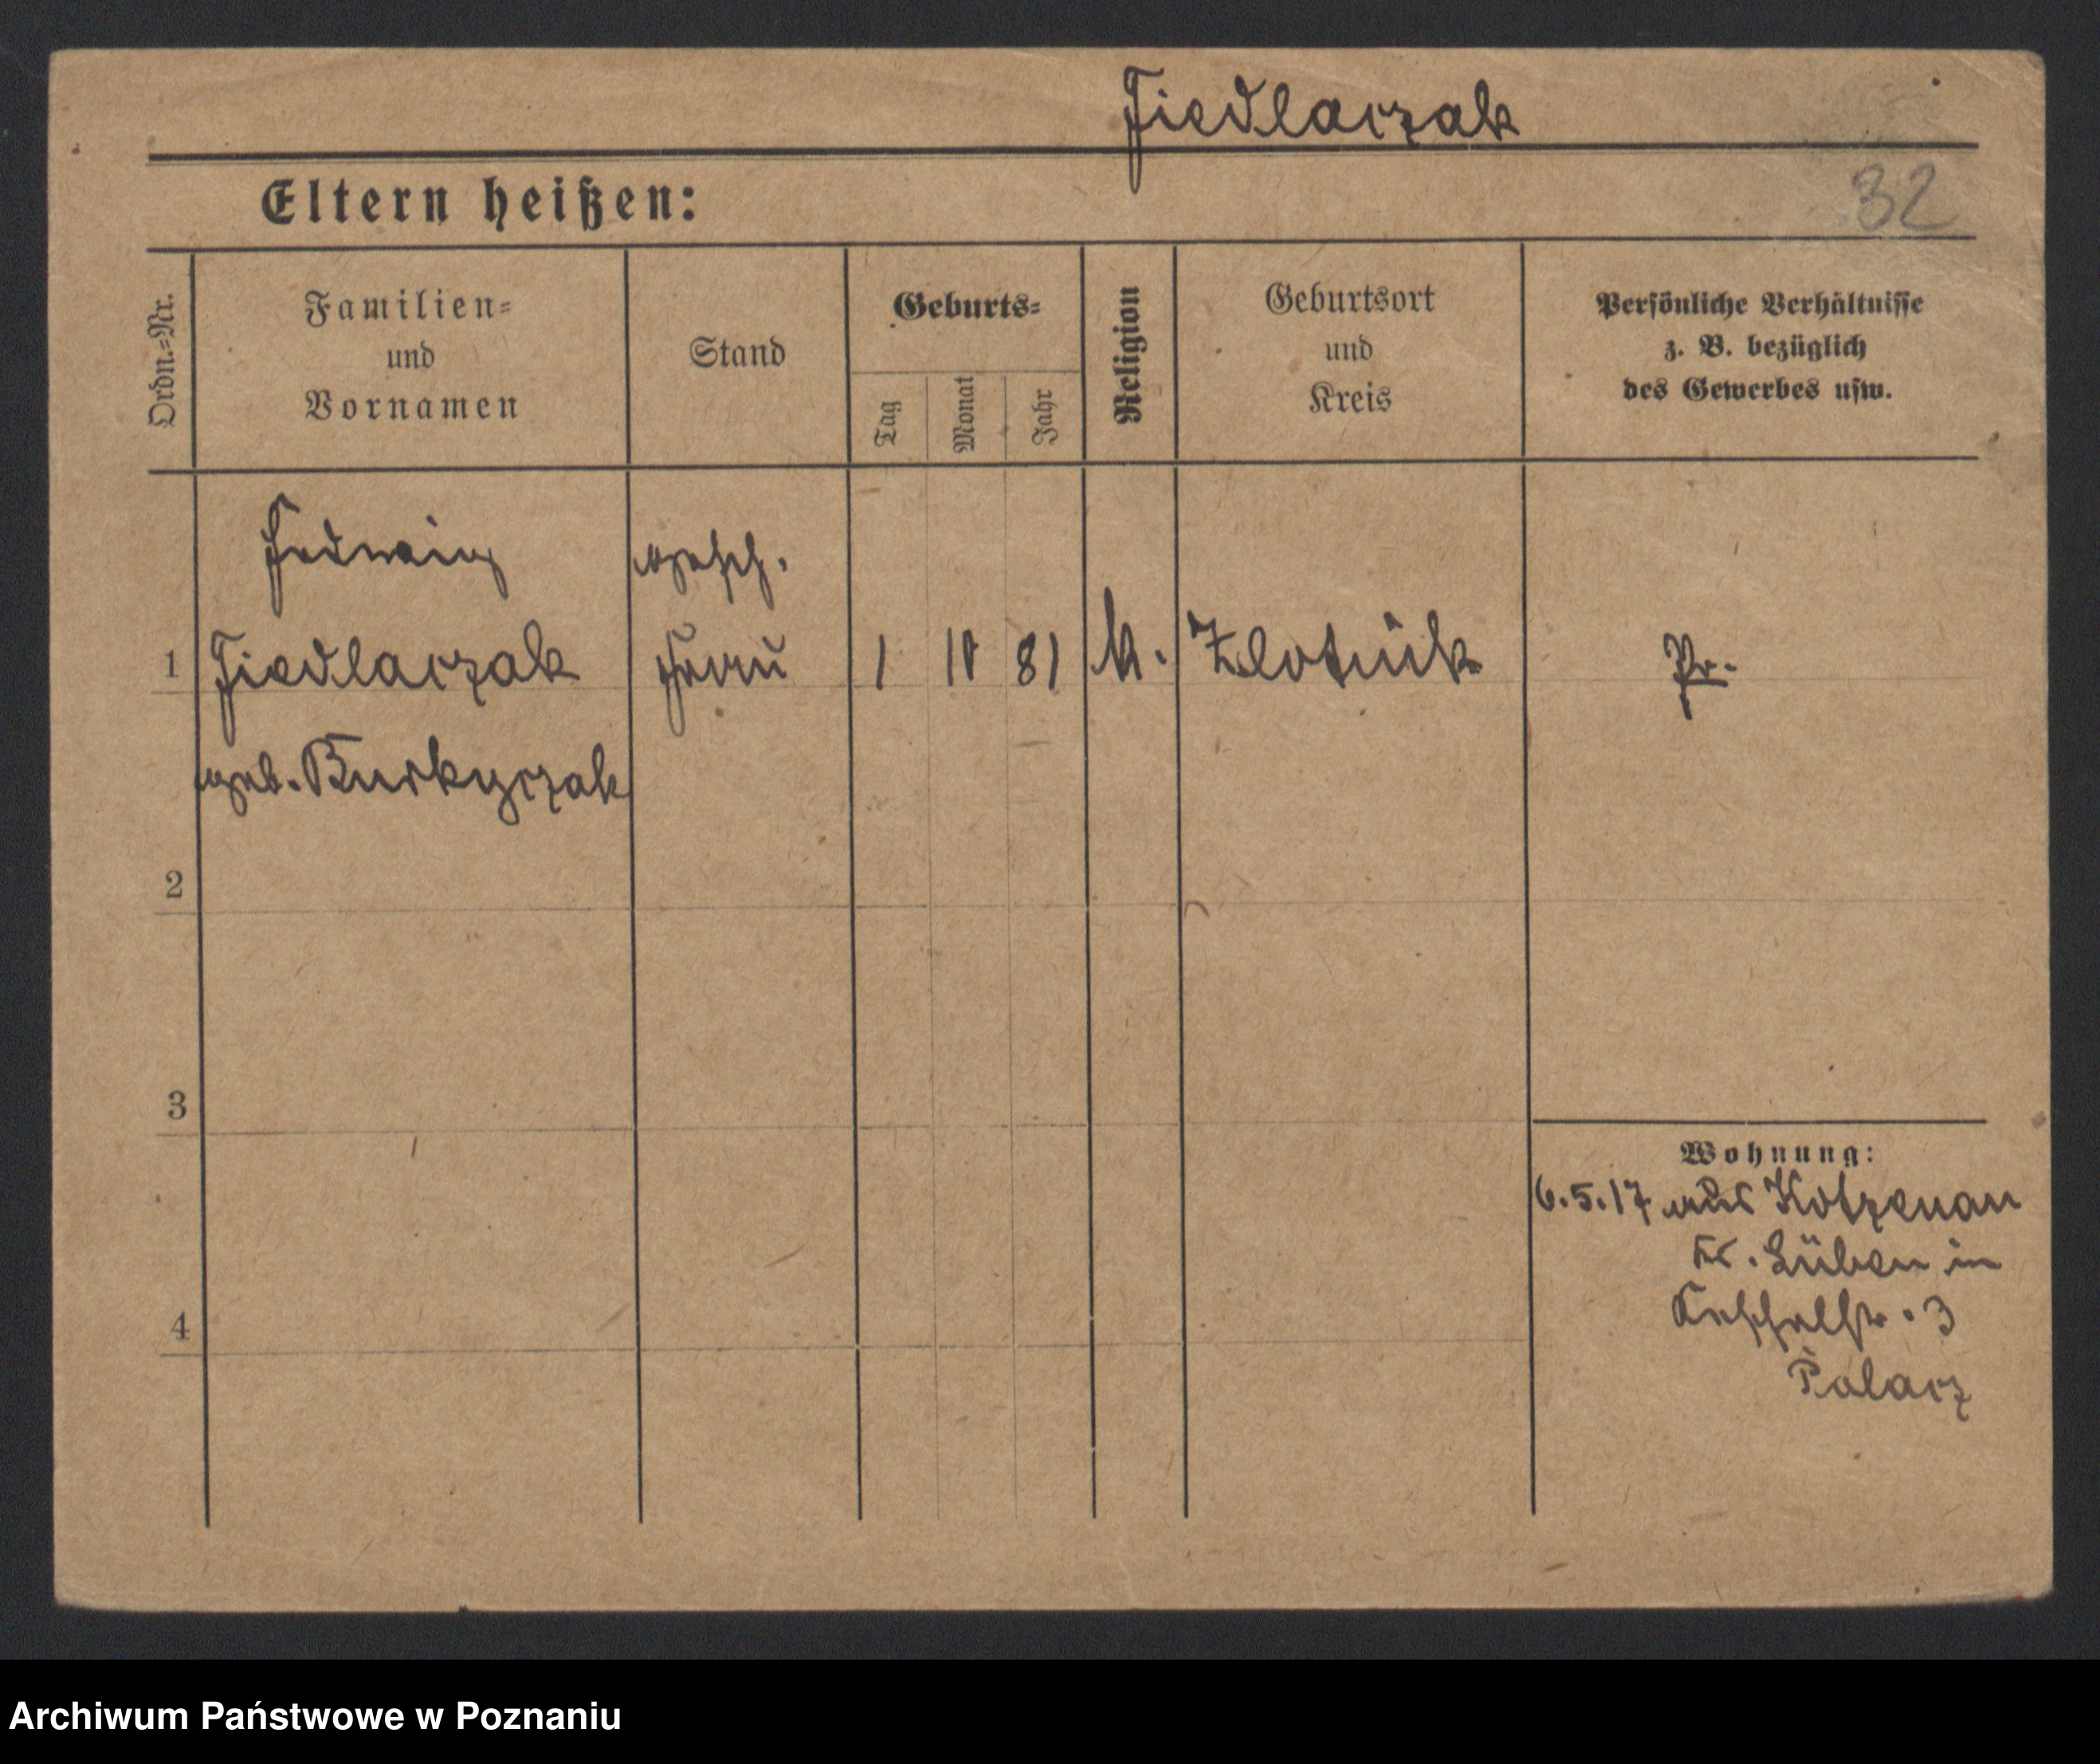 Fiedlaczak
Eltern heißen:
32
Ordn.-Nr.
Familien-
und
Vornamen
Stand
Geburts-
Tag
Monat
Jahr
Religion
Geburtsort
und
Kreis
Persönliche Verhältnisse
z. B. bezüglich
des Gewerbes usw.
Hedwig
gesch.
1 Fiedlaczak Frau 1 10 81 k. Zlotnik Pr.
geb.
2
3
Wohnung:
6.5.17 aus Kotzenau
Kr. Lüben in
3
4
Palacz
Archiwum Państwowe w Poznaniu